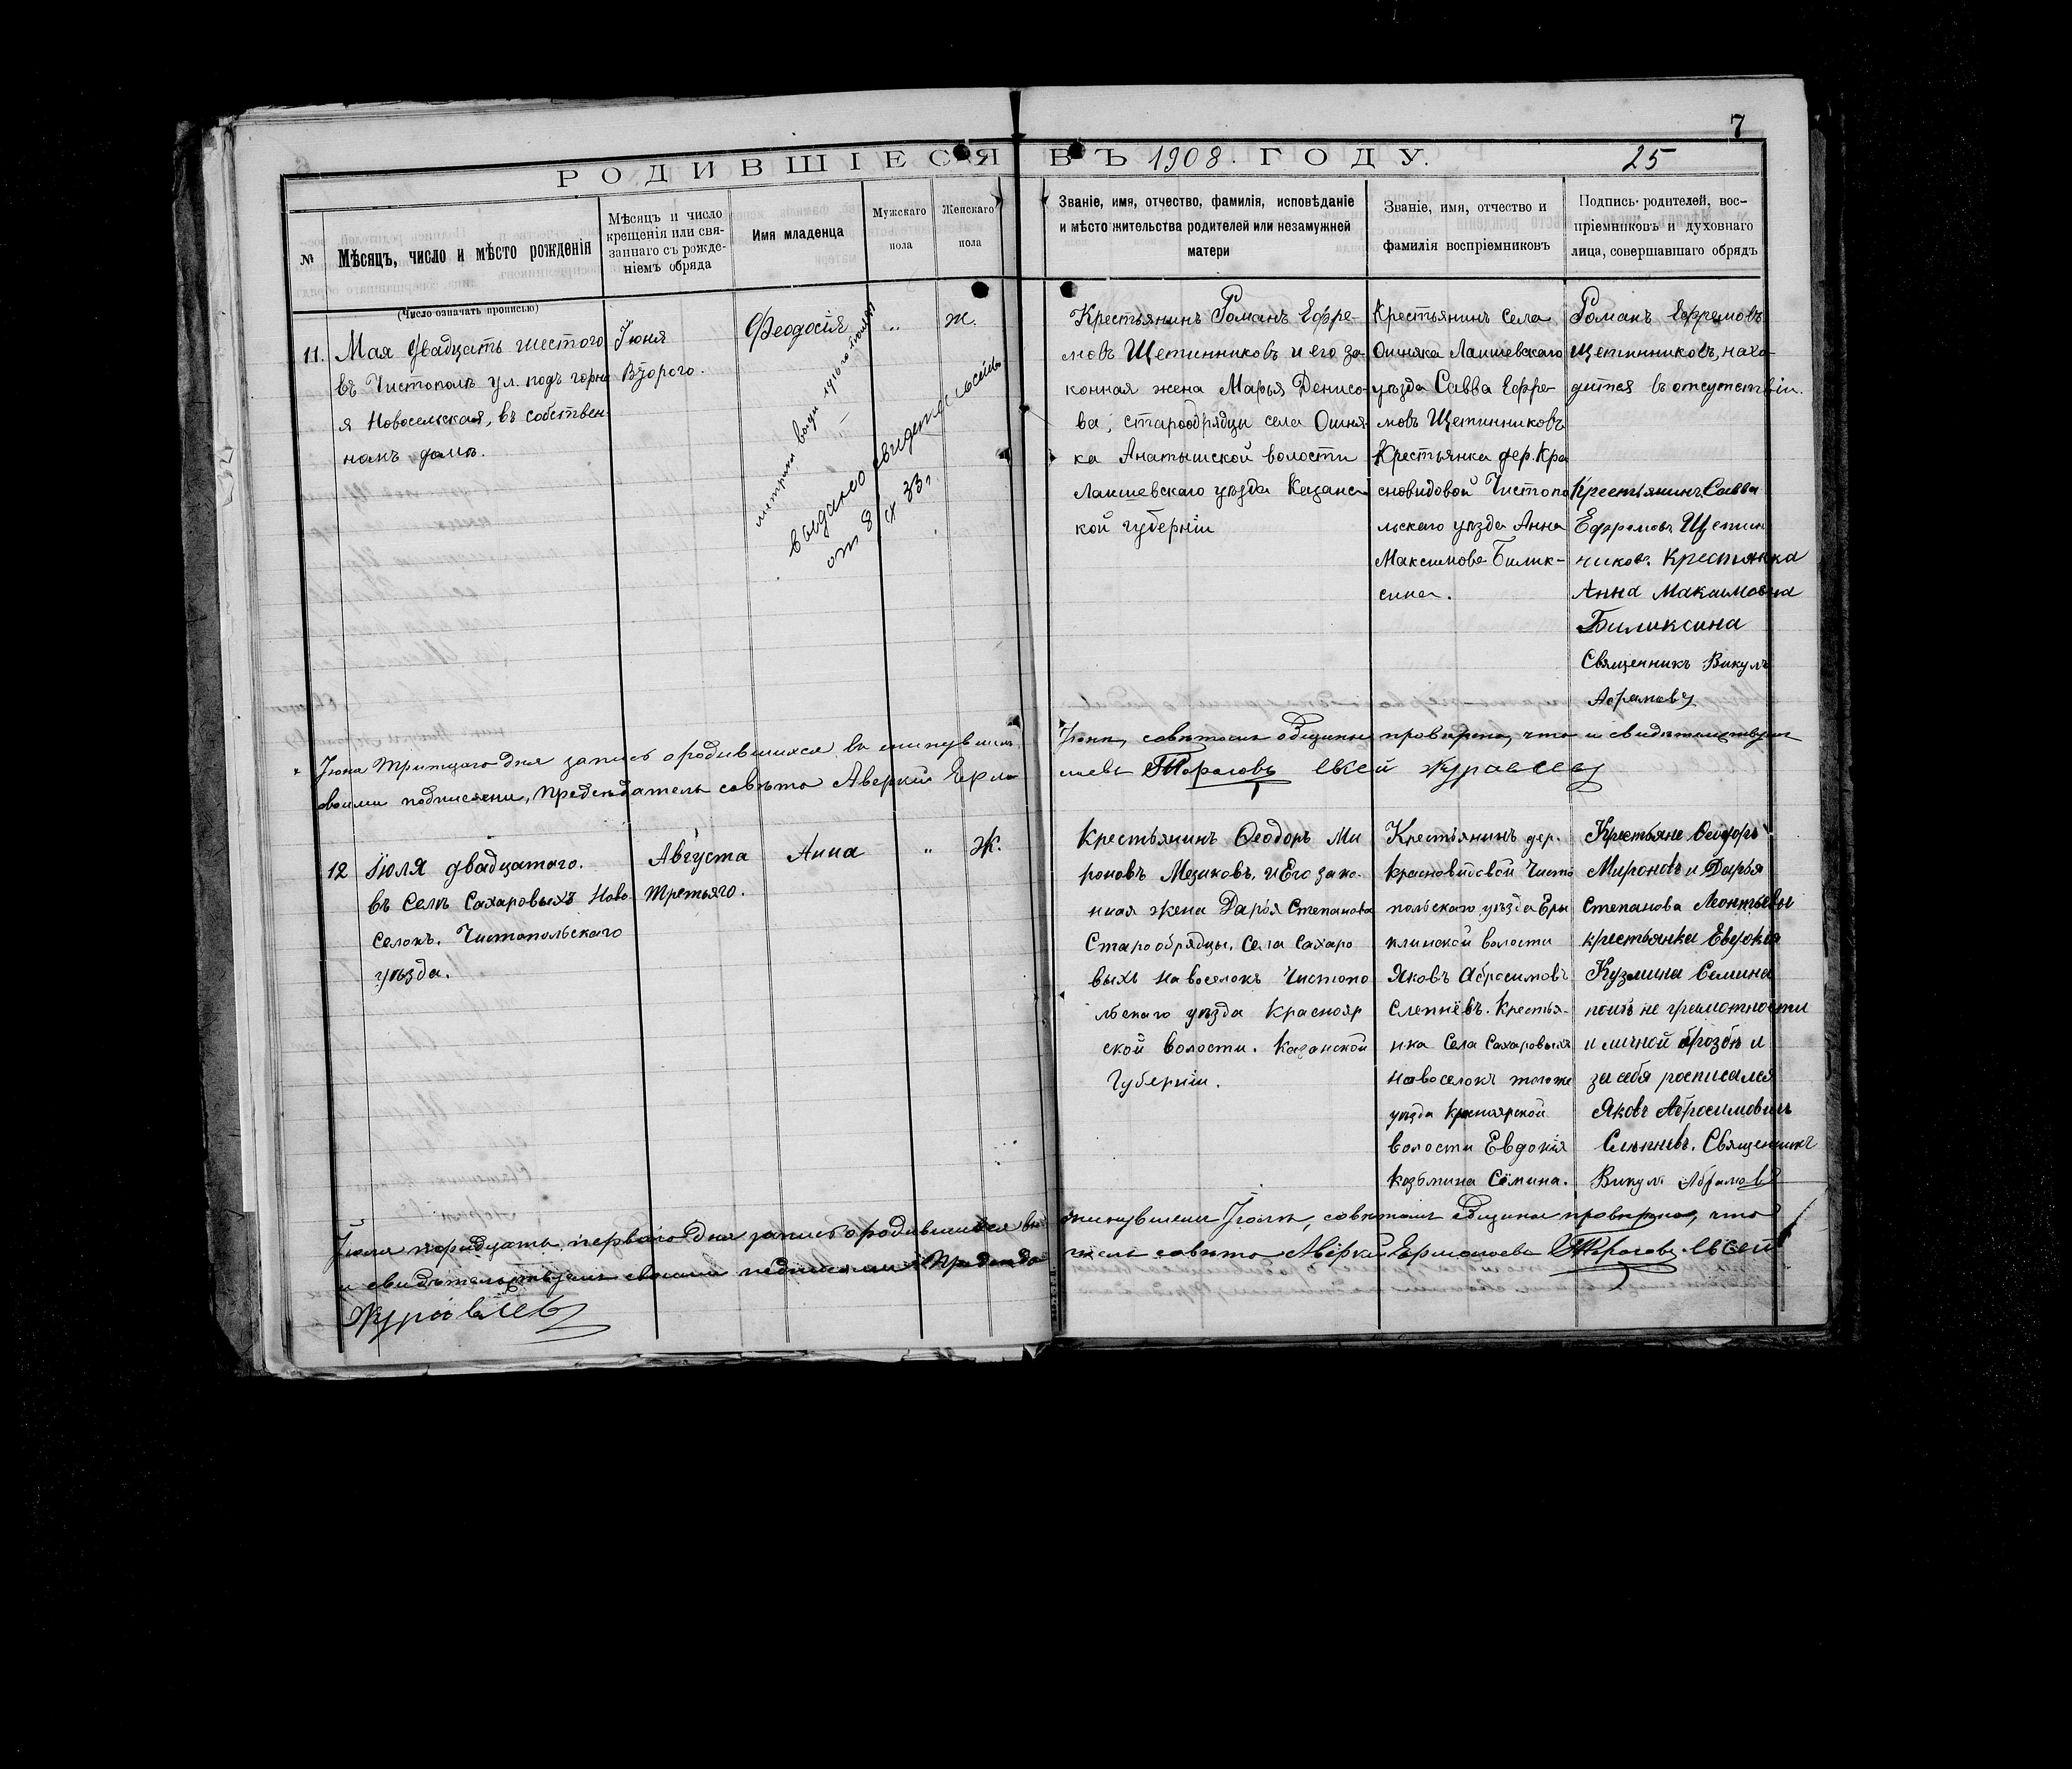 7
РОДИВШІЕСЯ ВЪ 1908. ГОДУ.
25
№
Мѣсяцъ, число и мѣсто рожденія
Мѣсяцъ и число
крещенія или свя-
заннаго съ рожде-
ніемъ обряда
Имя младенца
Мужскаго
пола
Женскаго
пола
Званіе, имя, отчество, фамилія, исповѣданіе
и мѣсто жительства родителей или незамужней
матери
Званіе, имя, отчество и
фамилія воспріемниковъ
Подпись родителей, вос-
пріемниковъ и духовнаго
лица, совершавшаго обрядъ
(Число означать прописью)
11.
Мая двадцать шестого
въ Чистополѣ ул. подъ горна
я Новосельская, въ собствен
номъ домѣ.
Іюня
Второго.
Феодосія
метрика выдн 1916 го
выдано свидетельство
от 8 33
„
ж.
Крестьянинъ Романъ Ефре-
мовъ Щетинниковъ и его за-
конная жена Марья Денисо-
ва, старообрядцы села Ошня-
ка Анатышской волости
Лаишевскаго уѣзда Казанс
кой губерніи
Крестьянинъ села
Ошняка Лаишевскаго
уѣзда Савва Ефре-
мовъ Щетинниковъ
Крестьянка дер. Кра
сновидовой Чистопо
льскаго уѣзда Анна
Максимова Билик-
сина.
Романъ Ефремовъ
Щетинниковъ, нахо-
дится въ отсутствіи.
Крестьянинъ Савва
Ефремовъ Щетин
никовъ. Крестянка
Анна Макимовна
Биликсина
Священникъ Викулъ
Абрамовъ
Іюня Тритцаго дня запись о родившихся въ минувшемъ
Іюнѣ, совѣтомъ общины провѣрена, что и свидѣтельствуем
своими подписями, Предсѣдатель совѣта Аверкій Ермо
лаевъ Тороговъ Евсей Журавлевъ
12
Іюля двадцатаго.
въ Селѣ Сахаровыхъ Ново
селокъ. Чистопольскаго
уѣзда.
Августа
Третьяго.
Анна
„
Ж.
Крестьянинъ Феодоръ Ми
роновъ Мезиковъ. и Его зако-
нная жена Дарья Степанова
Старообрядцы. Села Сахаро
выхъ Новоселокъ Чистопо
льскаго уѣзда Краснояр
ской волости. Казанской
Губерніи.
Крестьянинъ дер.
Красновидовой Чисто
польскаго уѣзда Еры
клинской волости
Яковъ Абросимовъ
Слепнёвъ. Крестья-
нка Села Сахаровыхъ
Новоселокъ тогоже
уѣзда Красноярской
волости Евдокія
Козьмина Сёмина.
Крестьяне Феодоръ
Мироновъ и Дарья
Степанова Леонтьевы
крестьянка Евдокія
Кузмина Семина
поихъ не грамотности
и личной прозбѣ и
за себя росписался
Яковъ Абросимовичъ
Слѣпневъ. Священникъ
Викулъ Абрамовъ
Іюля тридцать перваго Дня запись о родившихся въ
минувшемъ Іюлѣ, совѣтомъ общины провѣрено, что
и свидѣтельствуемъ своими подписями Предсѣда
тель совѣта Аверкій Ермолаевъ Тороговъ Евсей
Журавлевъ